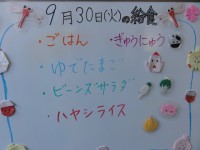 9月30日(火)の給食
・ごはん ・ぎゅうにゅう
・ゆでたまご
・ビーンズサラダ
・ハヤシライス